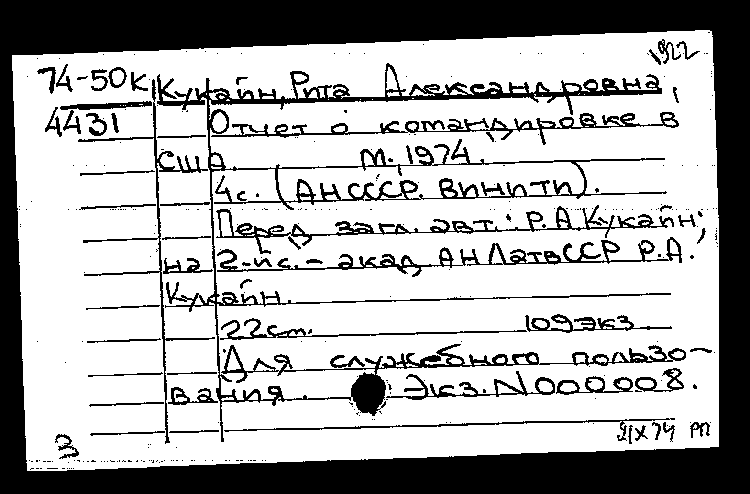 1922
74-50к Кукайн, Рита Александровна,
4431 Отчет о командировке в
США. М., 1974.
4с. (АН СССР. ВИНИТИ).
Перед загл. авт.: Р.А. Кукайн;
на 2-й с. - акад. АН ЛатвССР Р.А.
Кукайн.
22 см. 109 экз.
Для служебного пользо-
вания. Экз. N 000008.
3 21 X 74 РП